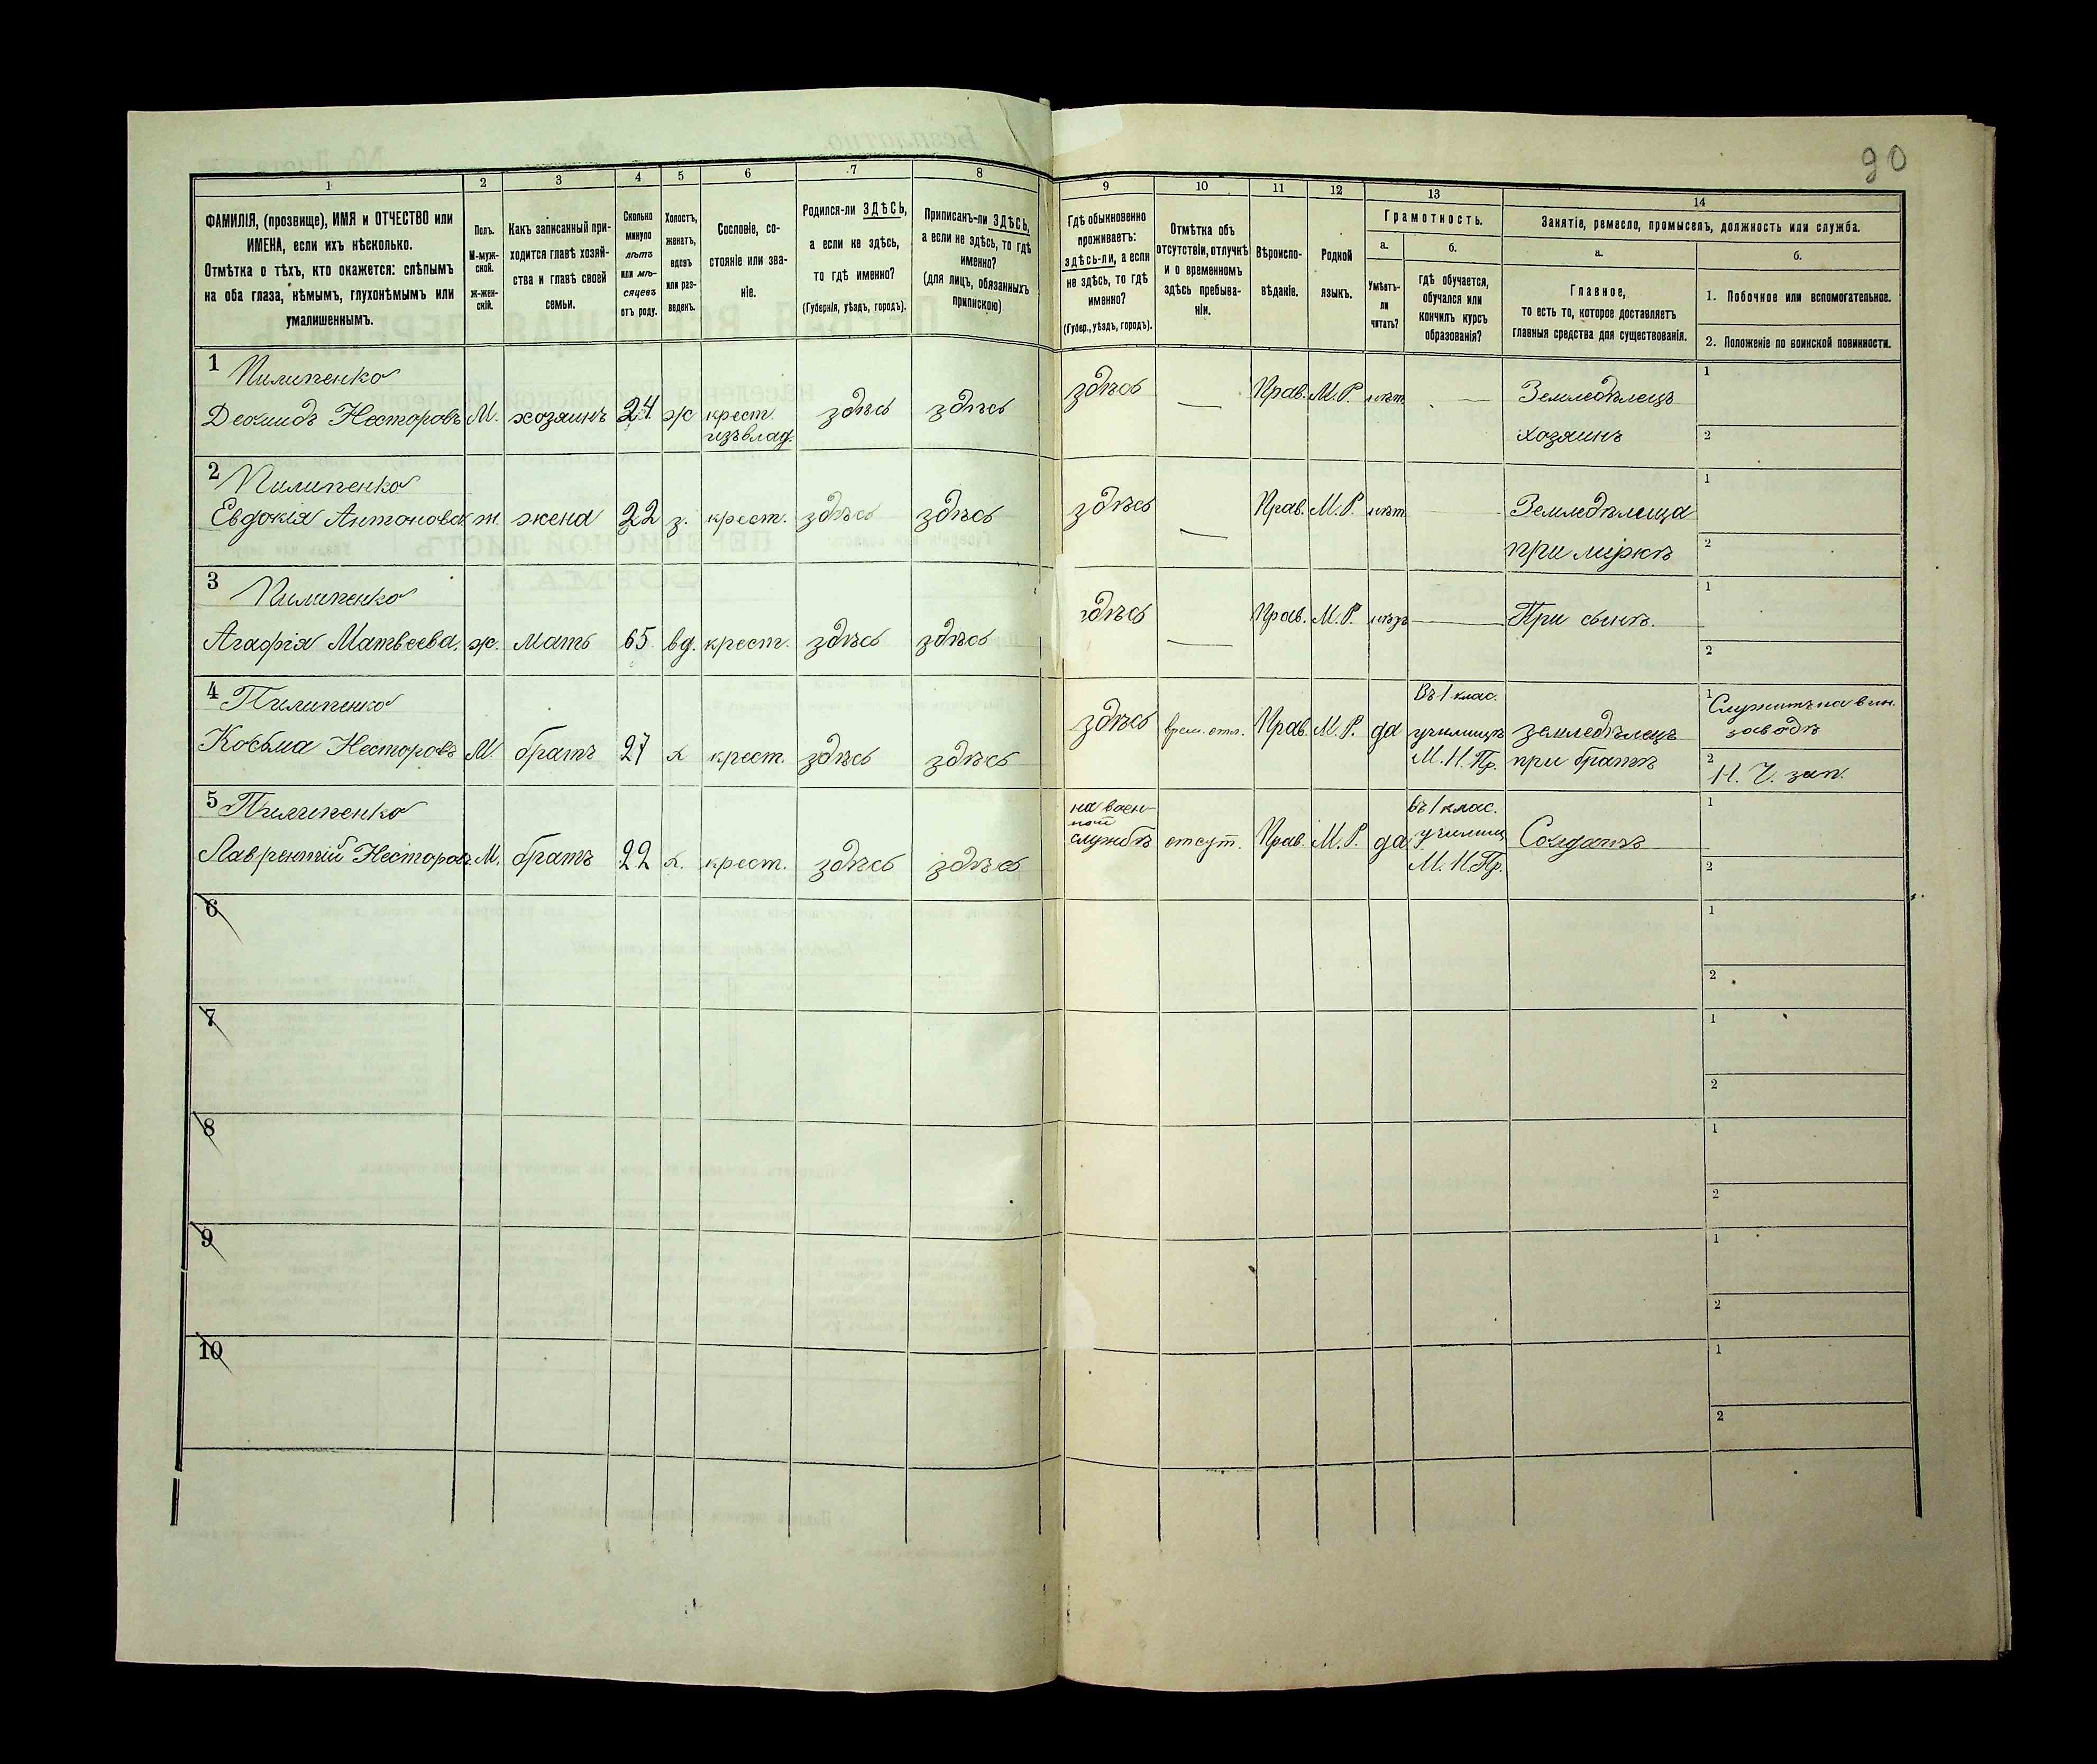 90
1
2
3
4
5
6
7
8
9
10
11
12
13
14
ФАМИЛІЯ, (прозвище), ИМЯ и ОТЧЕСТВО или
ИМЕНА, если ихъ нѣсколько.
Отмѣтка о тѣхъ, кто окажется: слѣпымъ
на оба глаза, нѣмымъ, глухонѣмымъ или
умалишеннымъ.
Полъ.
М-муж-
ской.
Ж-жен-
скій.
Какъ записанный при-
ходится главѣ хозяй-
ства и главѣ своей
семьи.
Сколько
минуло
лѣтъ
или мѣ-
сяцевъ
отъ роду.
Холостъ,
женатъ,
вдовъ
или раз-
веденъ.
Сословіе, со-
стояніе или зва-
ніе.
Родился-ли ЗДѢСЬ,
а если не здѣсь,
то гдѣ именно?
(Губернія, уѣздъ, городъ).
Приписанъ-ли ЗДѢСЬ,
а если не здѣсь, то гдѣ
именно?
(для лицъ, обязанныхъ
припискою)
Гдѣ обыкновенно
проживаетъ:
здѣсь-ли, а если
не здѣсь, то гдѣ
именно?
(Губер., уѣздъ, городъ).
Отмѣтка объ
отсутствіи, отлучкѣ
и о временномъ
здѣсь пребыва-
ніи.
Вѣроиспо-
вѣданіе.
Родной
языкъ.
Грамотность.
а.
Умѣетъ-
ли
читать?
б.
гдѣ обучается,
обучался или
кончилъ курсъ
образованія?
Занятіе, ремесло, промыселъ, должность или служба.
а.
Главное,
то есть то, которое доставляетъ
главныя средства для существованія.
б.
1. Побочное или вспомогательное.
2. Положеніе по воинской повинности.
1 Пилипенко
Деомидъ Несторовъ М. хозяинъ 24 ж крест. здѣсь здѣсь здѣсь — Прав. М.Р. нѣт — Земледѣлецъ 1
изъ влад. хозяинъ 2
2 Пилипенко
Евдокія Антонова ж. жена 22 з. крест. здѣсь здѣсь здѣсь — Прав. М.Р. нѣт Земледѣлица 1
при мужѣ 2
3 Пилипенко
Агафія Матвеева. ж. мать 65 вд. крест. здѣсь здѣсь здѣсь — Прав. М.Р. нѣт — При сынѣ. 1
2
4 Пилипенко Въ 1 клас. 1 Служитъ на вин.
Косьма Несторовъ М. братъ 27 х крест. здѣсь здѣсь здѣсь врем. отл. Прав. М.Р. да училищѣ земледѣлецъ заводѣ
М.Н.Пр. при братѣ 2 Н. Ч. зап.
5 Пилипенко на воен- въ 1 клас. 1
ной
Лаврентій Несторовъ М. братъ 22 х. крест. здѣсь здѣсь службѣ отсут. Прав. М.Р. да училищ Солдатъ
М.Н.Пр. 2
6 1
2
7 1
2
8 1
2
9 1
2
10 1
2